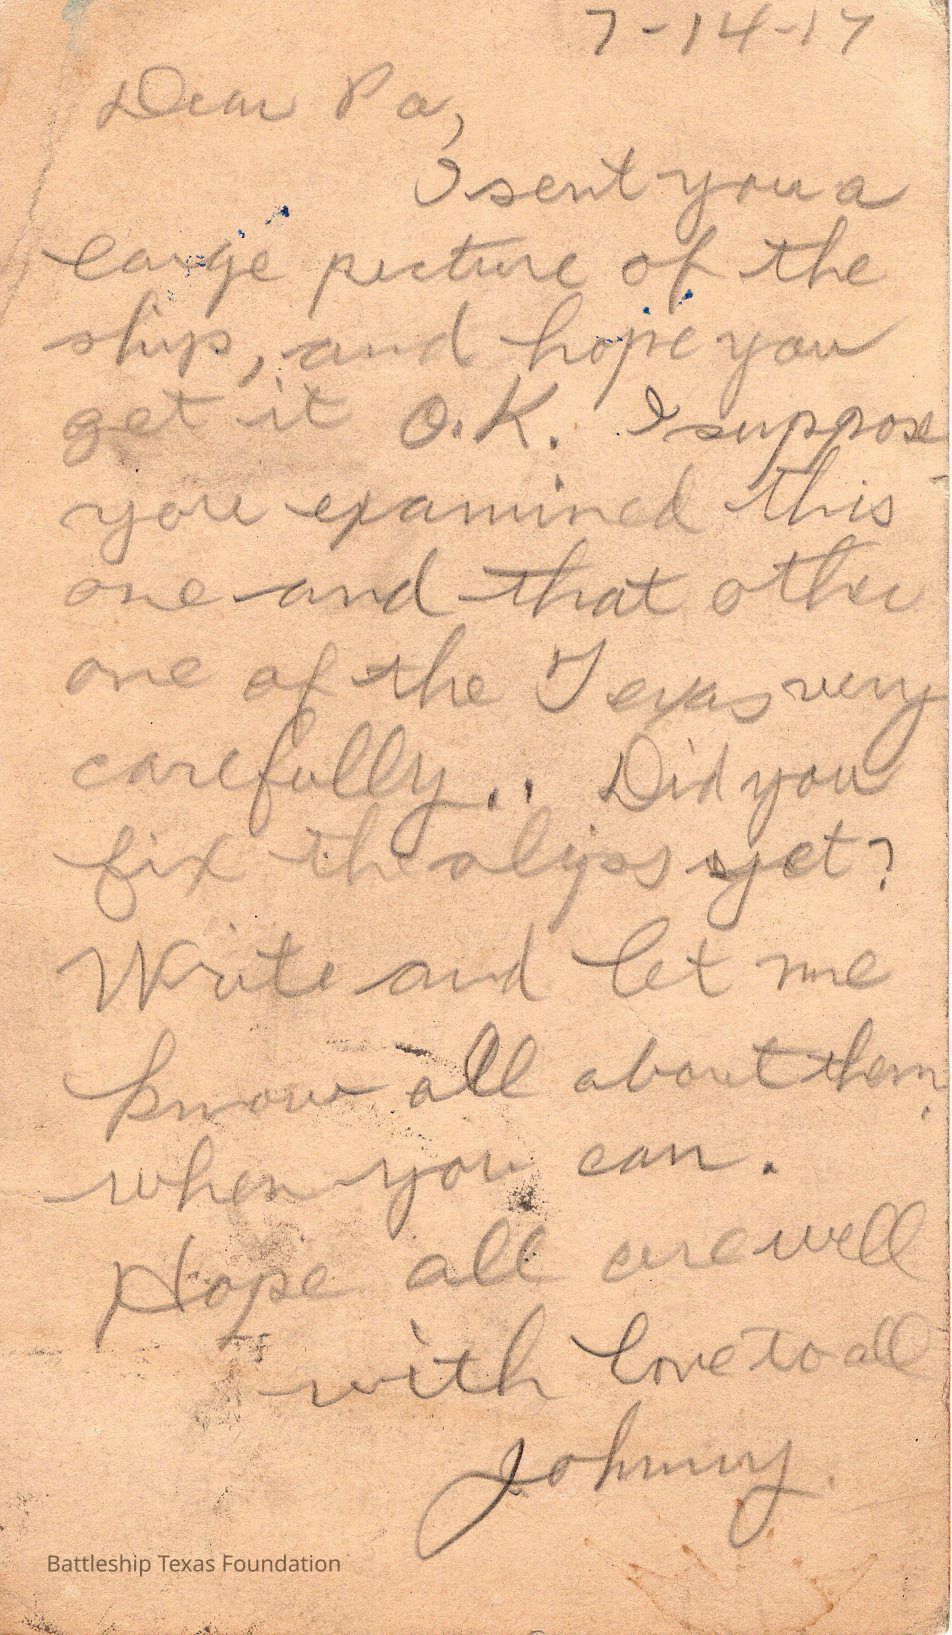 7-14-17
Dear Pa,
I sent you a
large picture of the
ship, and hope you
get it O.K. I suppose
you examined this
one and that other
one of the Texas very
carefully.. Did you
fix the yet?
Write and let me
know all about them,
when you can.
Hope all are well
with love to all
Johnny.
Battleship Texas Foundation